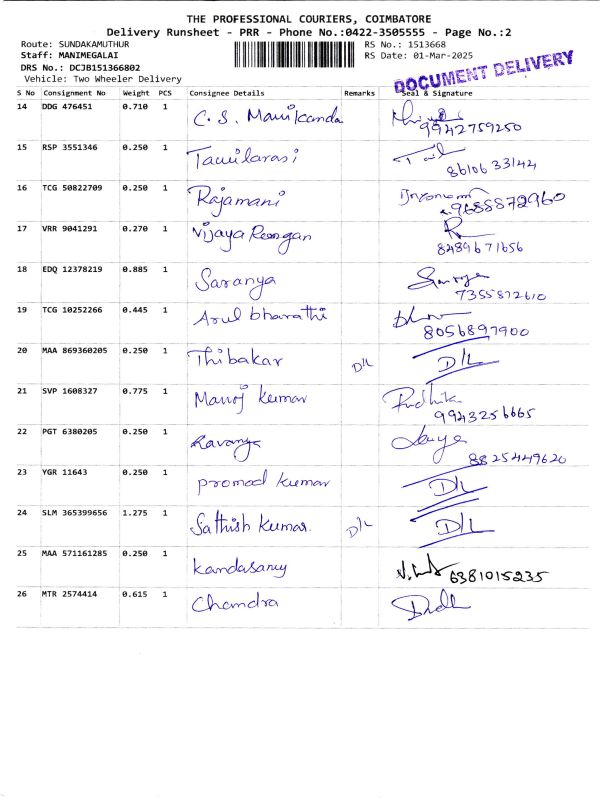 THE PROFESSIONAL COURIERS, COIMBATORE
Delivery Runsheet - PRR - Phone No.:0422-3505555 - Page No.:2
Route: SUNDAKAMUTHUR RS No.: 1513668
Staff: MANIMEGALAI RS Date: 01-Mar-2025
DRS No.: DCJB151366802
Vehicle: Two Wheeler Delivery
DOCUMENT DELIVERY
S No Consignment No Weight PCS Consignee Details Remarks Seal & Signature
14 DDG 476451 0.710 1 C. S. Manikanda
9942759250
15 RSP 3551346 0.250 1 Tamilarasi
8610633142
16 TCG 50822709 0.250 1 Rajamani
9688872960
17 VRR 9041291 0.270 1 Vijaya Rengan
8489671656
18 EDQ 12378219 0.885 1 Saranya
7355872610
19 TCG 10252266 0.445 1 Arul bharathi
8056897900
20 MAA 869360205 0.250 1 Thibakar D/L D/L
21 SVP 1608327 0.775 1 Manoj kumar
9943256665
22 PGT 6380205 0.250 1 Lavanya
8825449620
23 YGR 11643 0.250 1 promod kumar D/L
24 SLM 365399656 1.275 1 Sathish kumar. D/L D/L
25 MAA 571161285 0.250 1 kandasamy 6381015235
26 MTR 2574414 0.615 1 Chandra